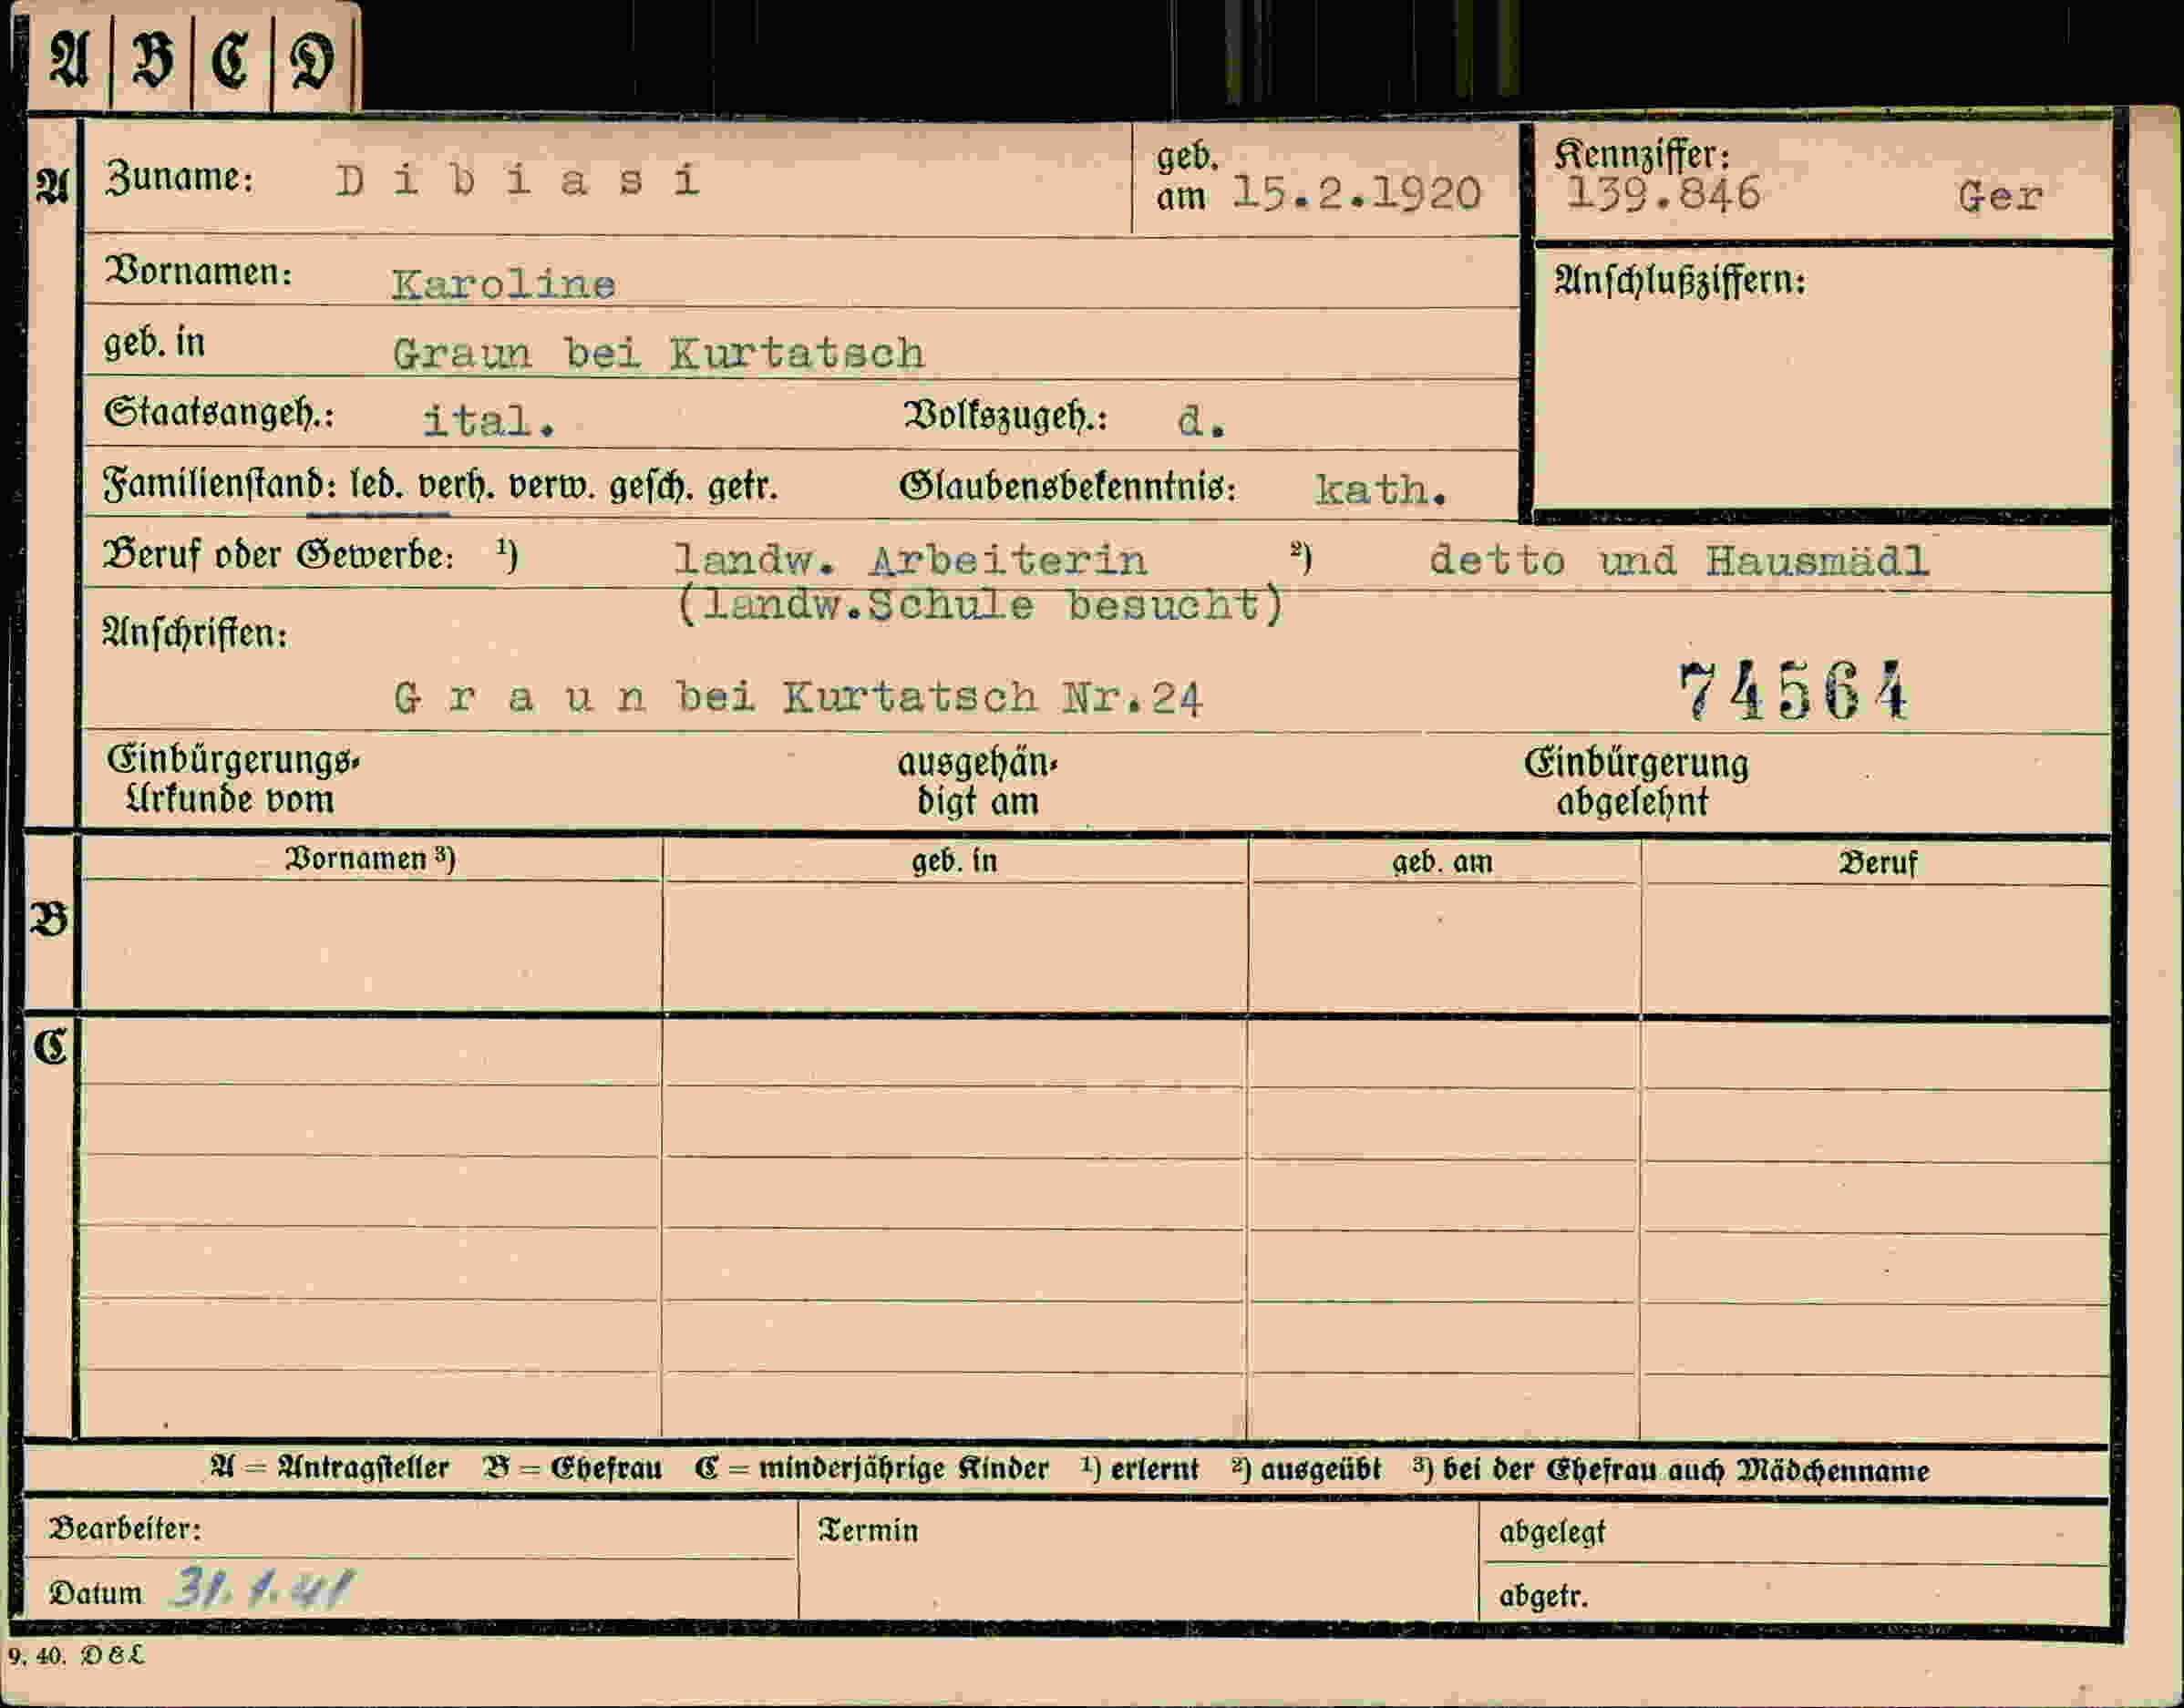 A B C D
A Zuname: Dibiasi geb. am 15.2.1920 Kennziffer: 139.846 Ger
Vornamen: Karoline Anschlußziffern:
geb. in Graun bei Kurtatsch
Staatsangeh.: ital. Volkszugeh.: d.
Familienstand: led. verh. verw. gesch. getr. Glaubensbekenntnis: kath.
Beruf oder Gewerbe: ¹) landw. Arbeiterin ²) detto und Hausmädl
(landw.Schule besucht)
Anschriften:
Graun bei Kurtatsch Nr.24 74564
Einbürgerungs- ausgehän- Einbürgerung
Urkunde vom digt am abgelehnt
Vornamen ³) geb. in geb. am Beruf
B
C
A = Antragsteller B = Ehefrau C = minderjährige Kinder ¹) erlernt ²) ausgeübt ³) bei der Ehefrau auch Mädchenname
Bearbeiter: Termin abgelegt
Datum 31.1.41 abgetr.
9. 40. D & L